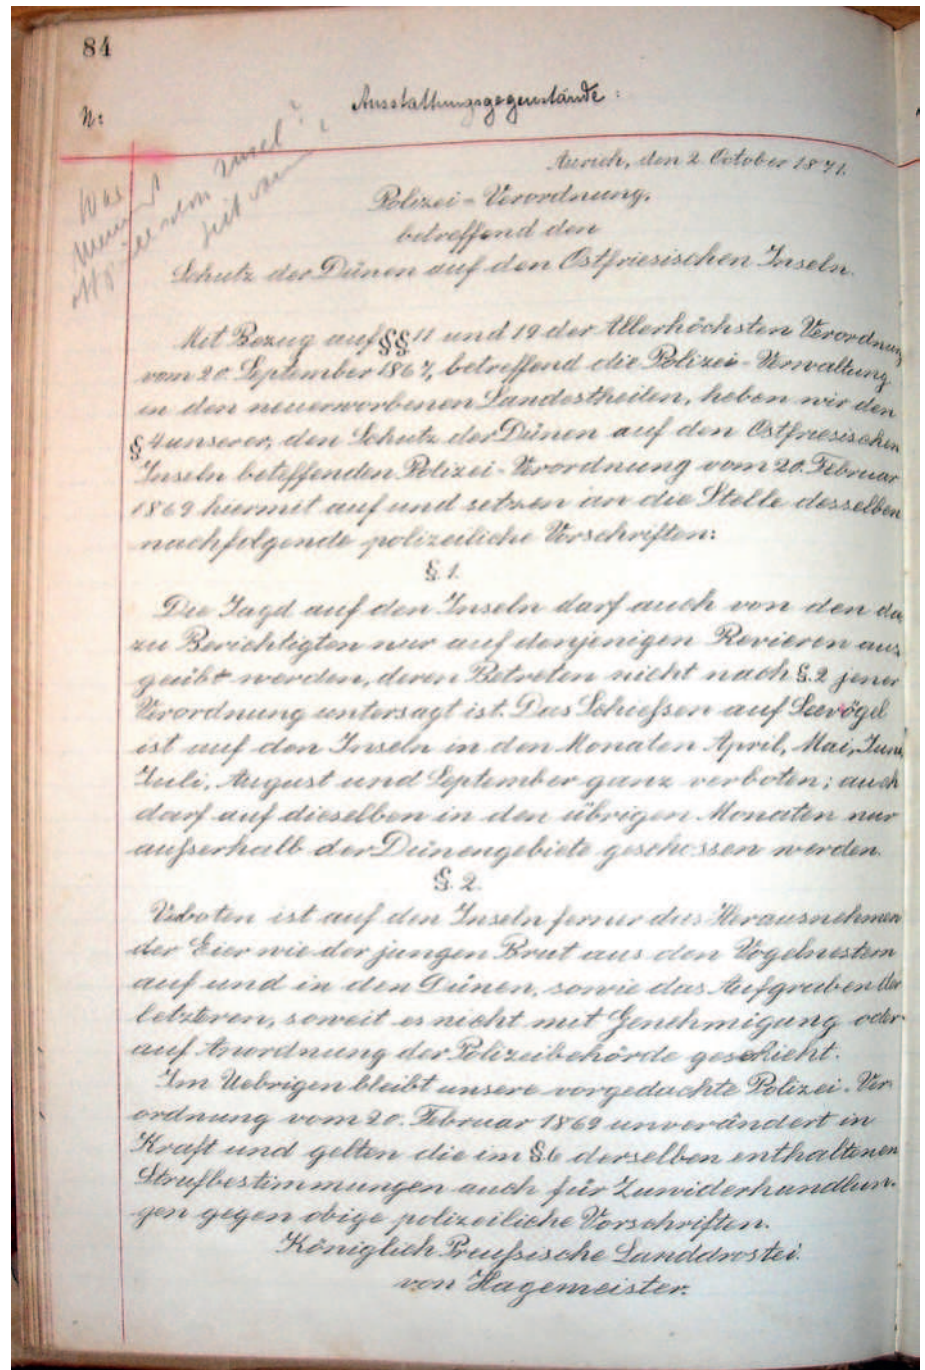 84
N:
Ausstattungsgegenstände:
Was
Aurich, den 2. October 1871.
Polizei-Verordnung,
betreffend den
Schutz der Dünen auf den Ostfriesischen Inseln.
Mit Bezug auf §§ 11 und 12 der Allerhöchsten Verordnung
vom 20. September 1867, betreffend die Polizei-Verwaltung
in den neuerworbenen Landestheilen, heben wir den
§ 4 unserer, den Schutz der Dünen auf den Ostfriesischen
Inseln beteffenden Polizei-Verordnung vom 20. Februar
1869 hiermit auf und setzen an die Stelle desselben
nachfolgende polizeiliche Vorschriften:
§. 1.
Die Jagd auf den Inseln darf auch von den da
zu Berichtigten nur auf denjenigen Revieren aus
geübt werden, deren Betreten nicht nach §. 2 jener
Verordnung untersagt ist. Das Schießen auf Seevögel
ist auf den Inseln in den Monaten April, Mai, Juni,
Juli, August und September ganz verboten; auch
darf auf dieselben in den übrigen Monaten nur
außerhalb der Dünengebiete geschossen werden.
§. 2.
Veboten ist auf den Inseln ferner das Herausnehmen
der Eier wie der jungen Brut aus den Vogelnestern
auf und in den Dünen, sowie das Aufgraben der
letzteren, soweit es nicht mit Genehmigung oder
auf Anordnung der Polizeibehörde geschieht.
Im Uebrigen bleibt unsere vorgedachte Polizei-Ver-
ordnung vom 20. Februar 1869 unverändert in
Kraft und gelten die im §6 derselben enthaltenen
Strafbestimmungen auch für Zuwiderhandlun-
gen gegen obige polizeiliche Vorschriften.
Königlich Preußische Landdrostei.
von Hagemeister.